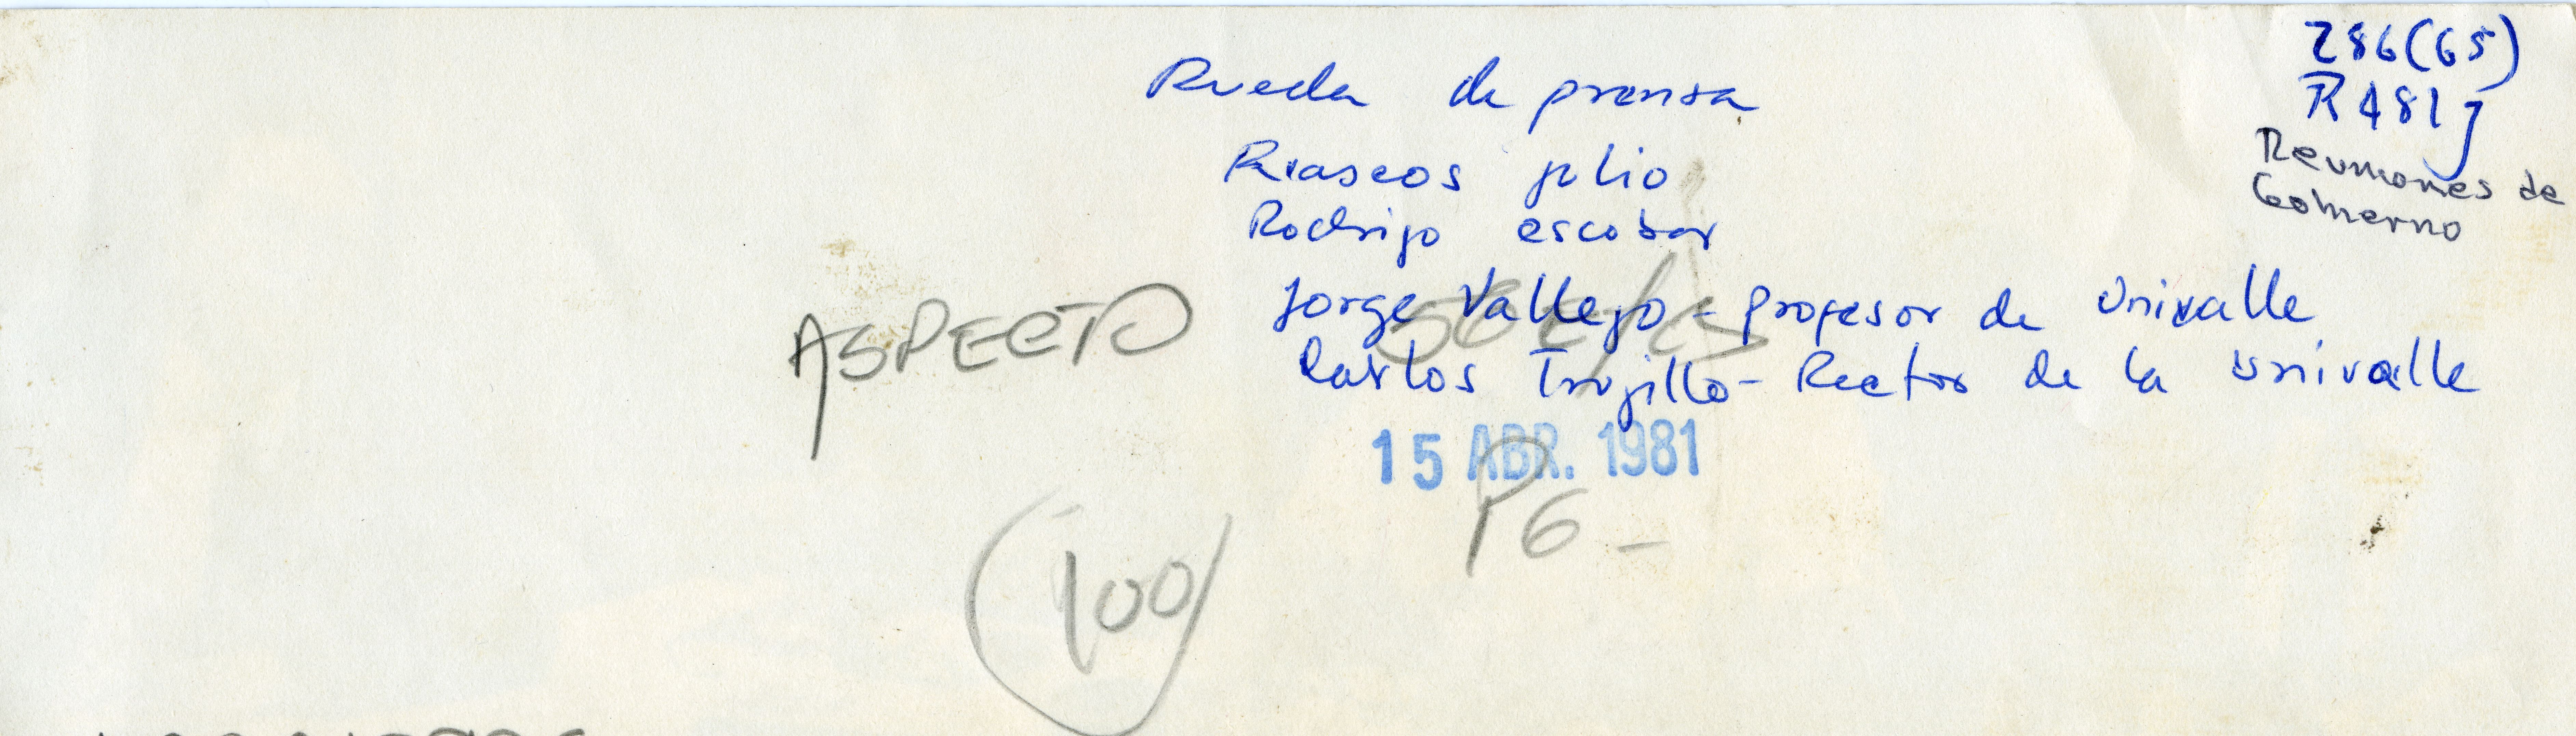 286(65)
R481j
Reuniones de
Gobierno
Rueda de prensa
Riascos julio
Rodrigo escobar
Jorge Vallejo - profesor de Univalle
Carlos Trujillo - Rector de la Univalle
ASPECTO
15 ABR. 1981
P6 -
100